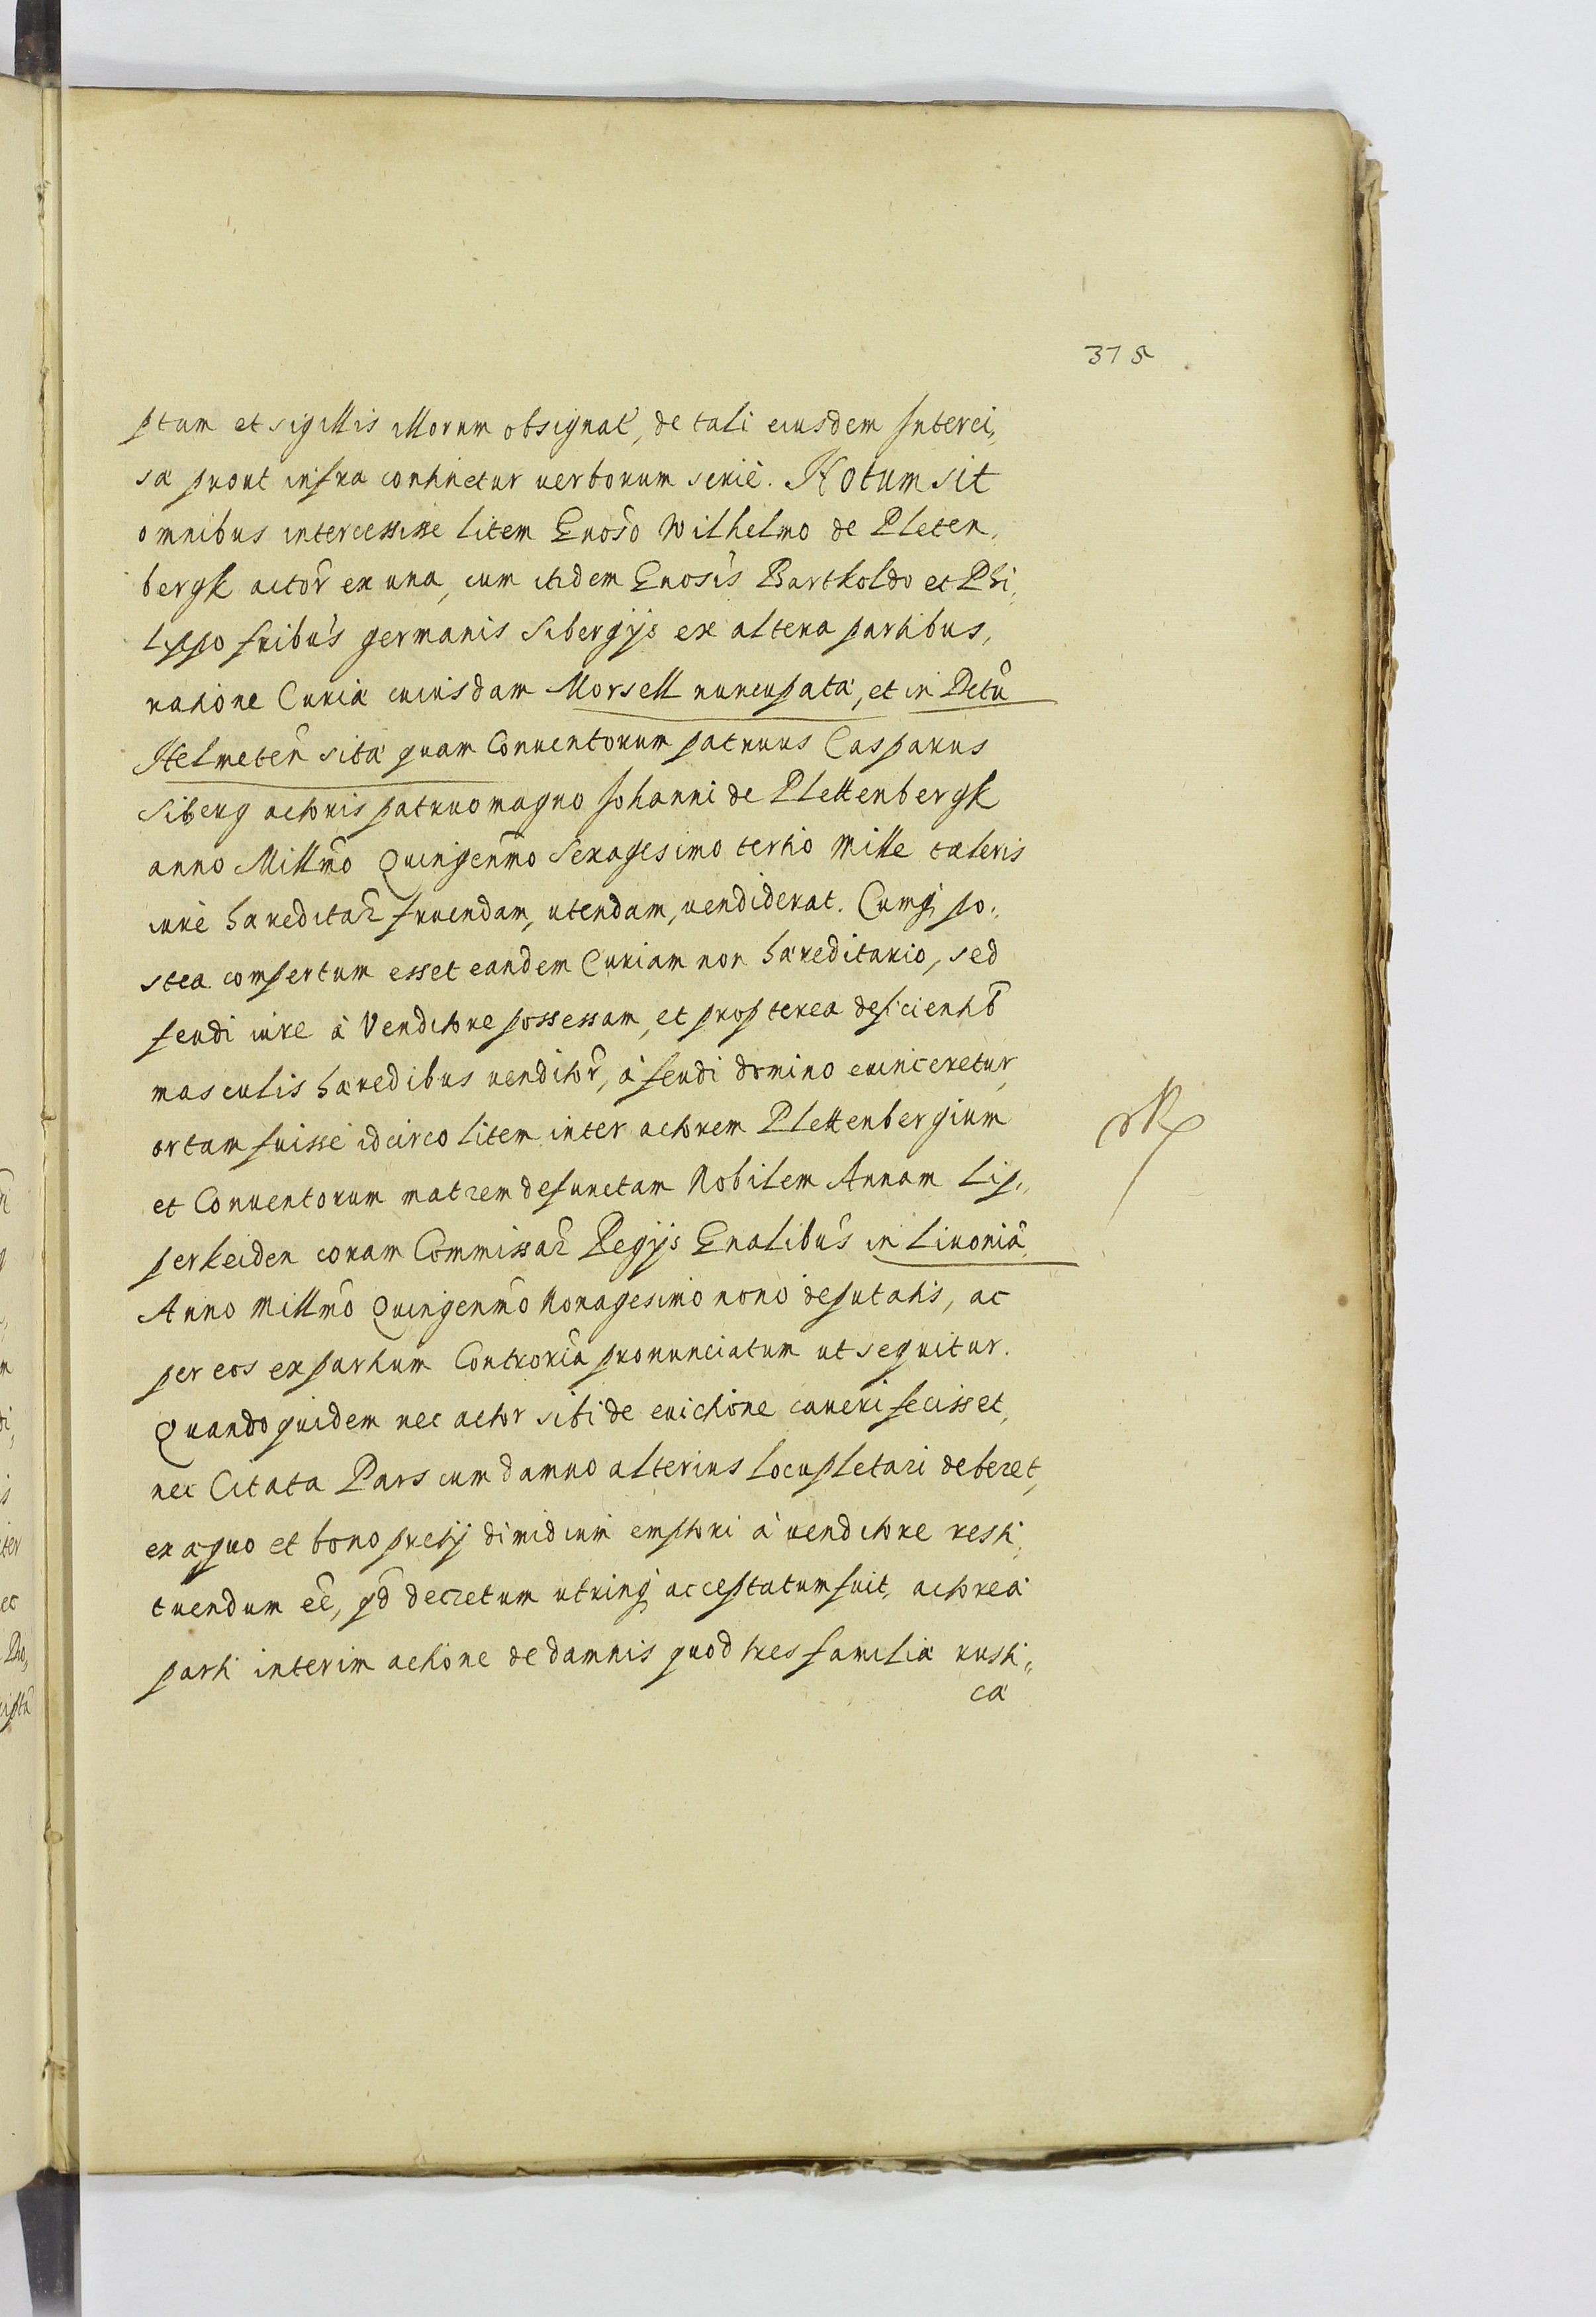 375
ptam et sigillis illorum obsignat, de tali eiusdem Interci,,
sæ prout infra continetur verborum serie. Notum sit
omnibus intercessisse litem Gnoso Wilhelmo de Pleten,
bergk actor ex una, cum itidem Gnosis Bartholdo et Phi,
lippo fribus germanis Sibergijs ex altera partibus,
ratione Curiæ cuiusdam Morsell nuncupatæ, et in Dctu
Helmeten sitæ quam Conventorum patruus Casparus
Siberg actoris patruo magno Johanni de Plettenbergk
anno Millmo Quingenmo Sexagesimo tertio Mille taleris
iure hæreditar fruendam, utendam, vendiderat. Cumq po,,
stea compertum esset eandem Curiam non hæreditario, sed
feudi iure à Venditore possessam, et propterea deficientib
masculis hæredibus venditor, à feudi domino evinceretur,
ortam fuisse idcirco litem inter actorem Plettenbergium
et Conventorum matrem defunctam Nobilem Annam Lip,,
perheiden coram Commissar Regijs Gnalibus in Livonia
Anno Millmo Quingenmo Nonagesimo nono deputatis, ac
per eos ex partium Controria pronunciatum ut sequitur.
Quandoquidem nec actor sibi de evictione caveri fecisset,
nec Citata Pars cum damno alterius locupletari deberet,
ex æquo et bono pretij dimidium emptori à venditore resti,
tuendum ee, qd decretum utrinq acceptatum fuit, actoreæ
parti interim actione de damnis quod tres familiæ rusti,,
cæ